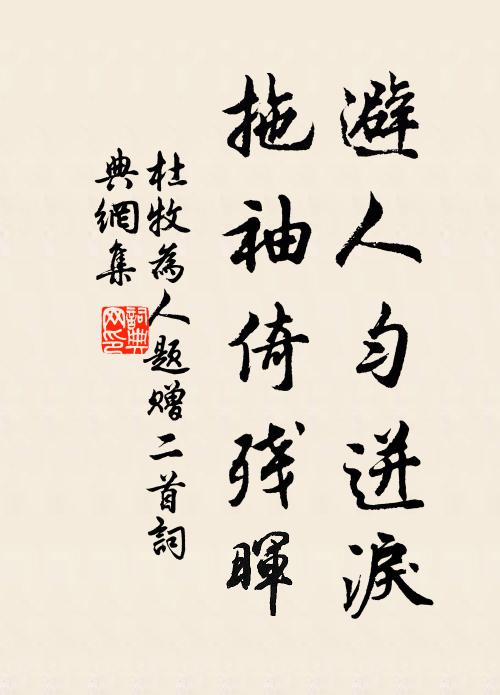 避人匀迸淚
拖袖倚残暉
杜牧為人題贈二首詞
典網集
詞典网印